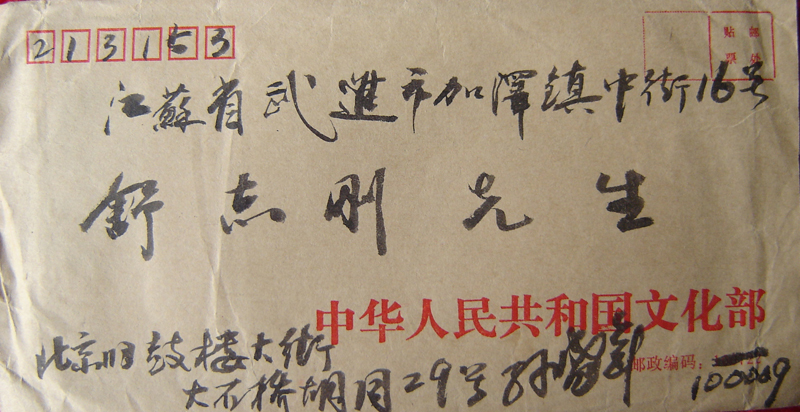 213153
贴 邮
票 处
江蘇省武進市加澤鎮中街16号
舒志刚先生
中华人民共和国文化部
北京旧鼓楼大街
大石桥胡同29号 孙
邮政编码：
100009